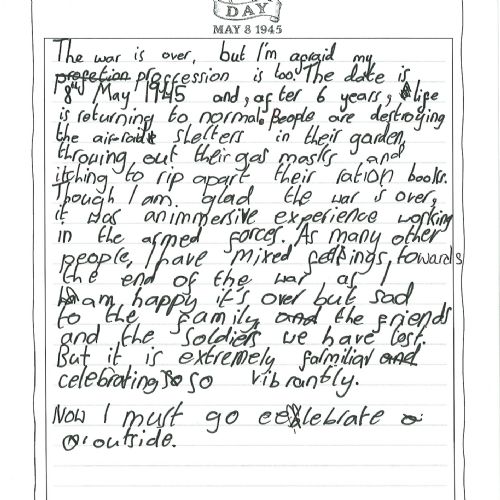 DAY
MAY 8 1945
The war is over, but I'm afraid my
profetion proffession is too. The date is
8th May 1945 and, after 6 years, life
is returning to normal. People are destroying
the air-raid shelters in their garden,
throwing out their gas masks and
itching to rip apart their ration books.
Though I am glad the war is over,
it was an immersive experience working
in the armed forces. As many other
people, I have mixed feelings, towards
the end of the war as I
am happy it's over but sad
to the family and the friends
and the soldiers we have lost.
But it is extremely familiar and
celebrating so so vibrantly.
Now I must go celebrate
outside.